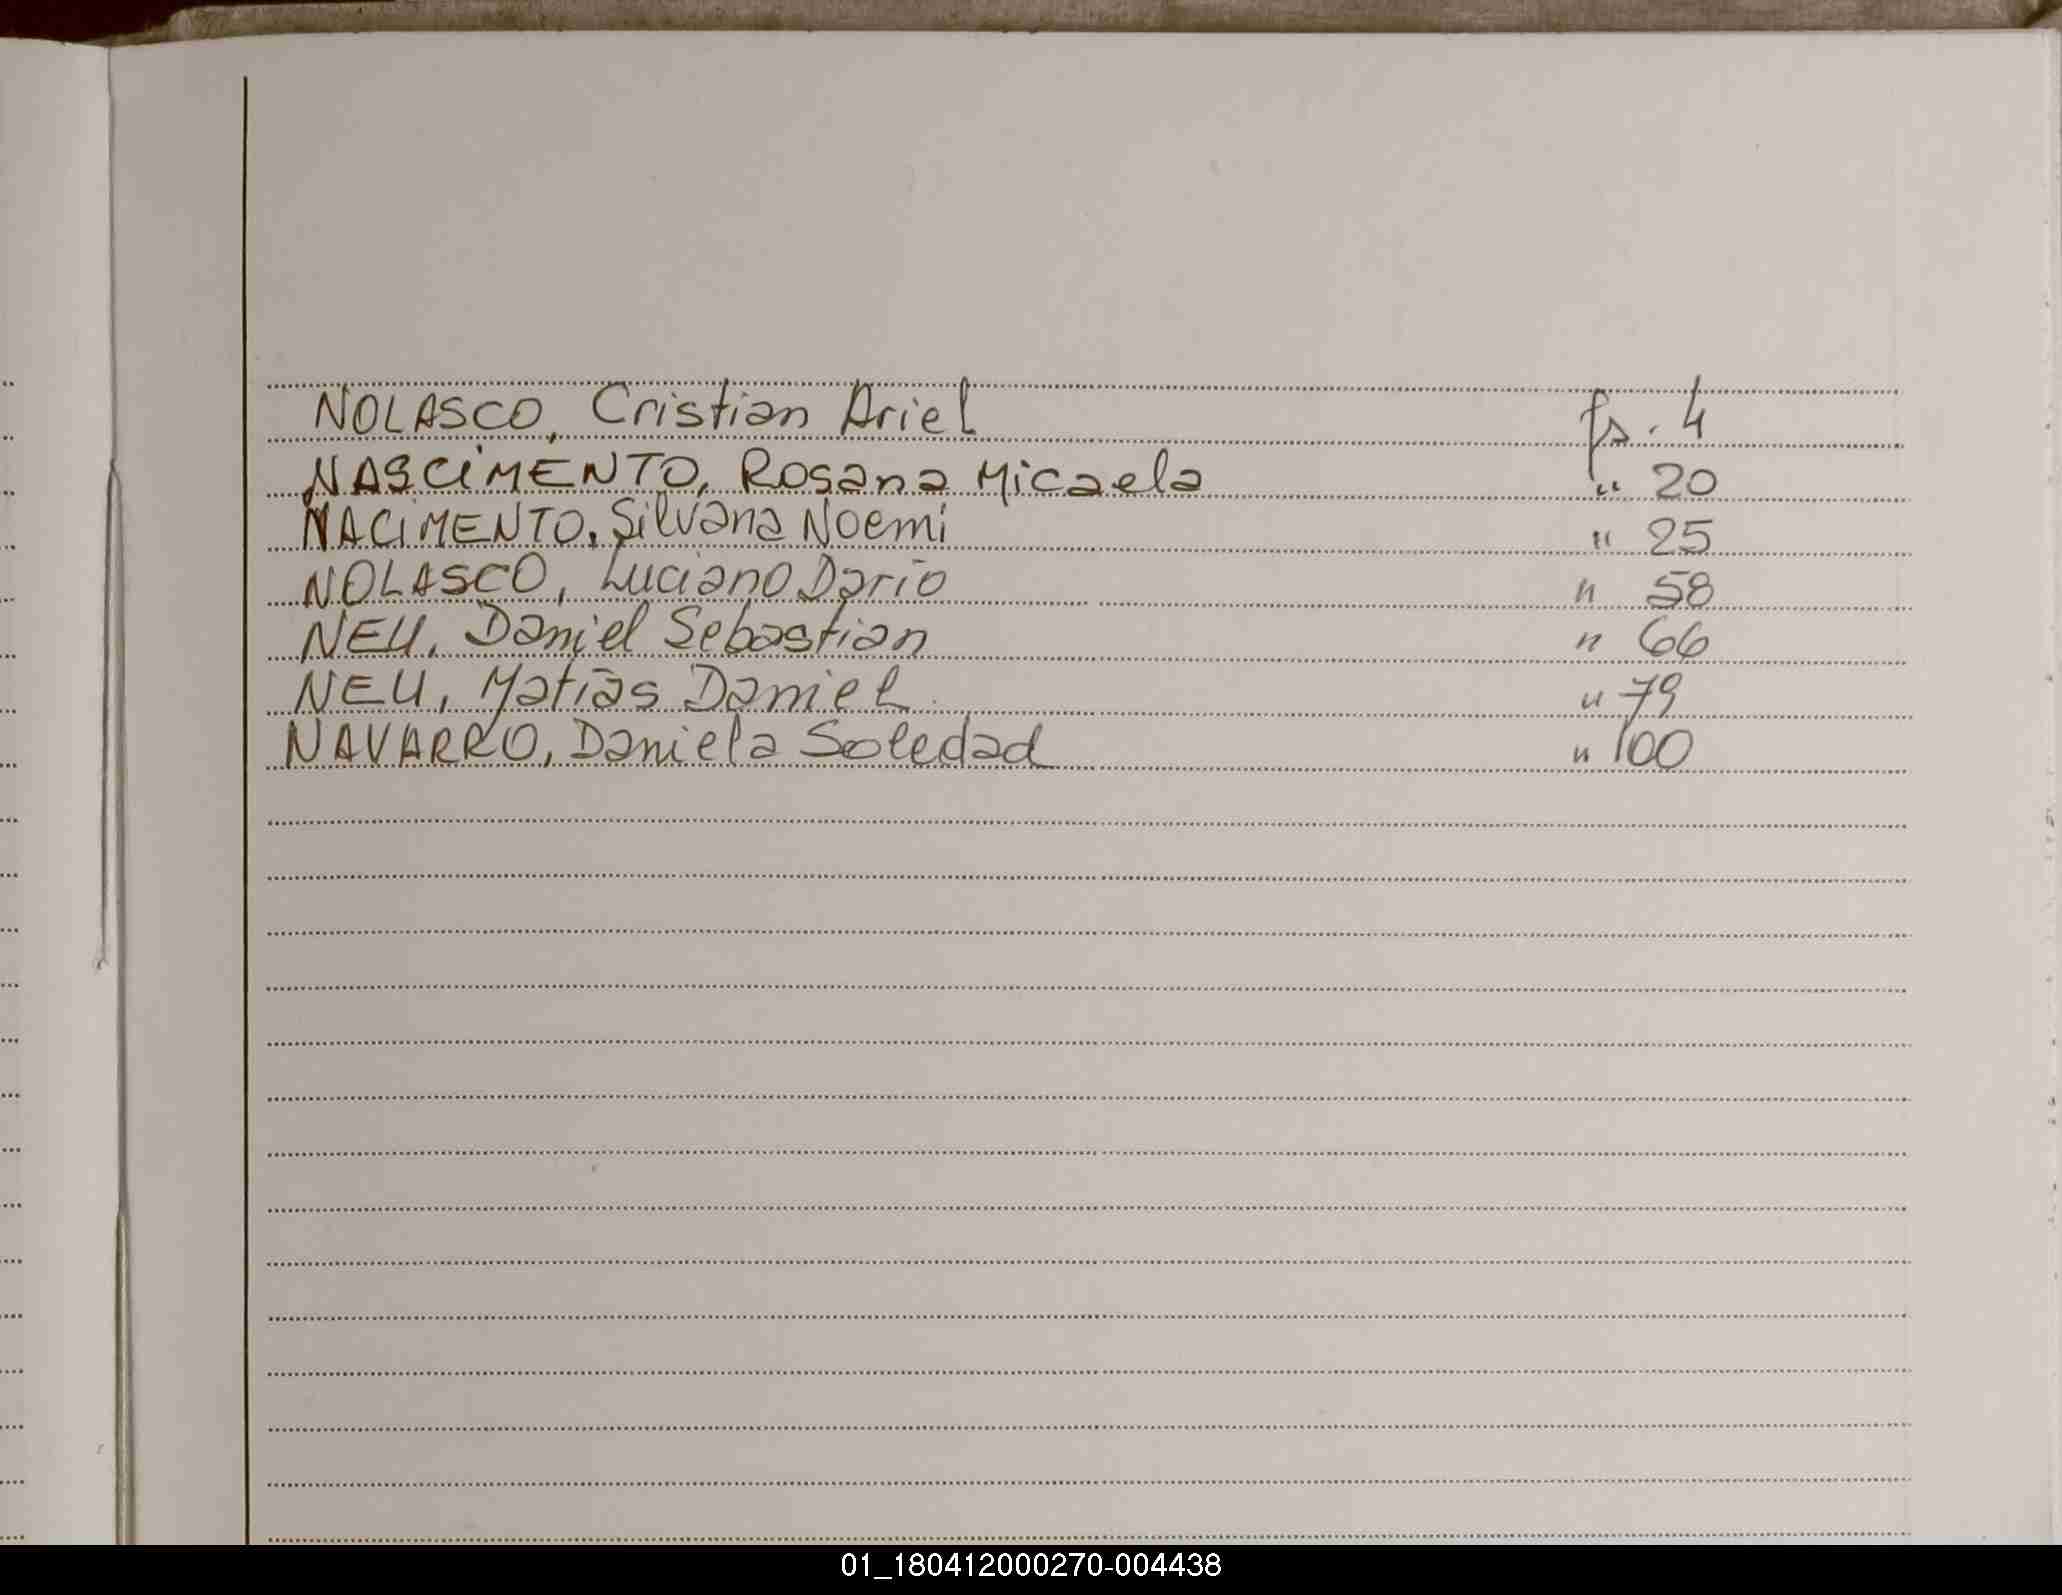 NOLASCO, Cristian Ariel fs. 4
NASCIMENTO, Rosana Micaela " 20
NACIMENTO, Silvana Noemi " 25
NOLASCO, Luciano Dario " 58
NEU, Daniel Sebastian " 66
NEU, Matias Daniel " 79
NAVARRO, Daniela Soledad " 100
01_180412000270-004438